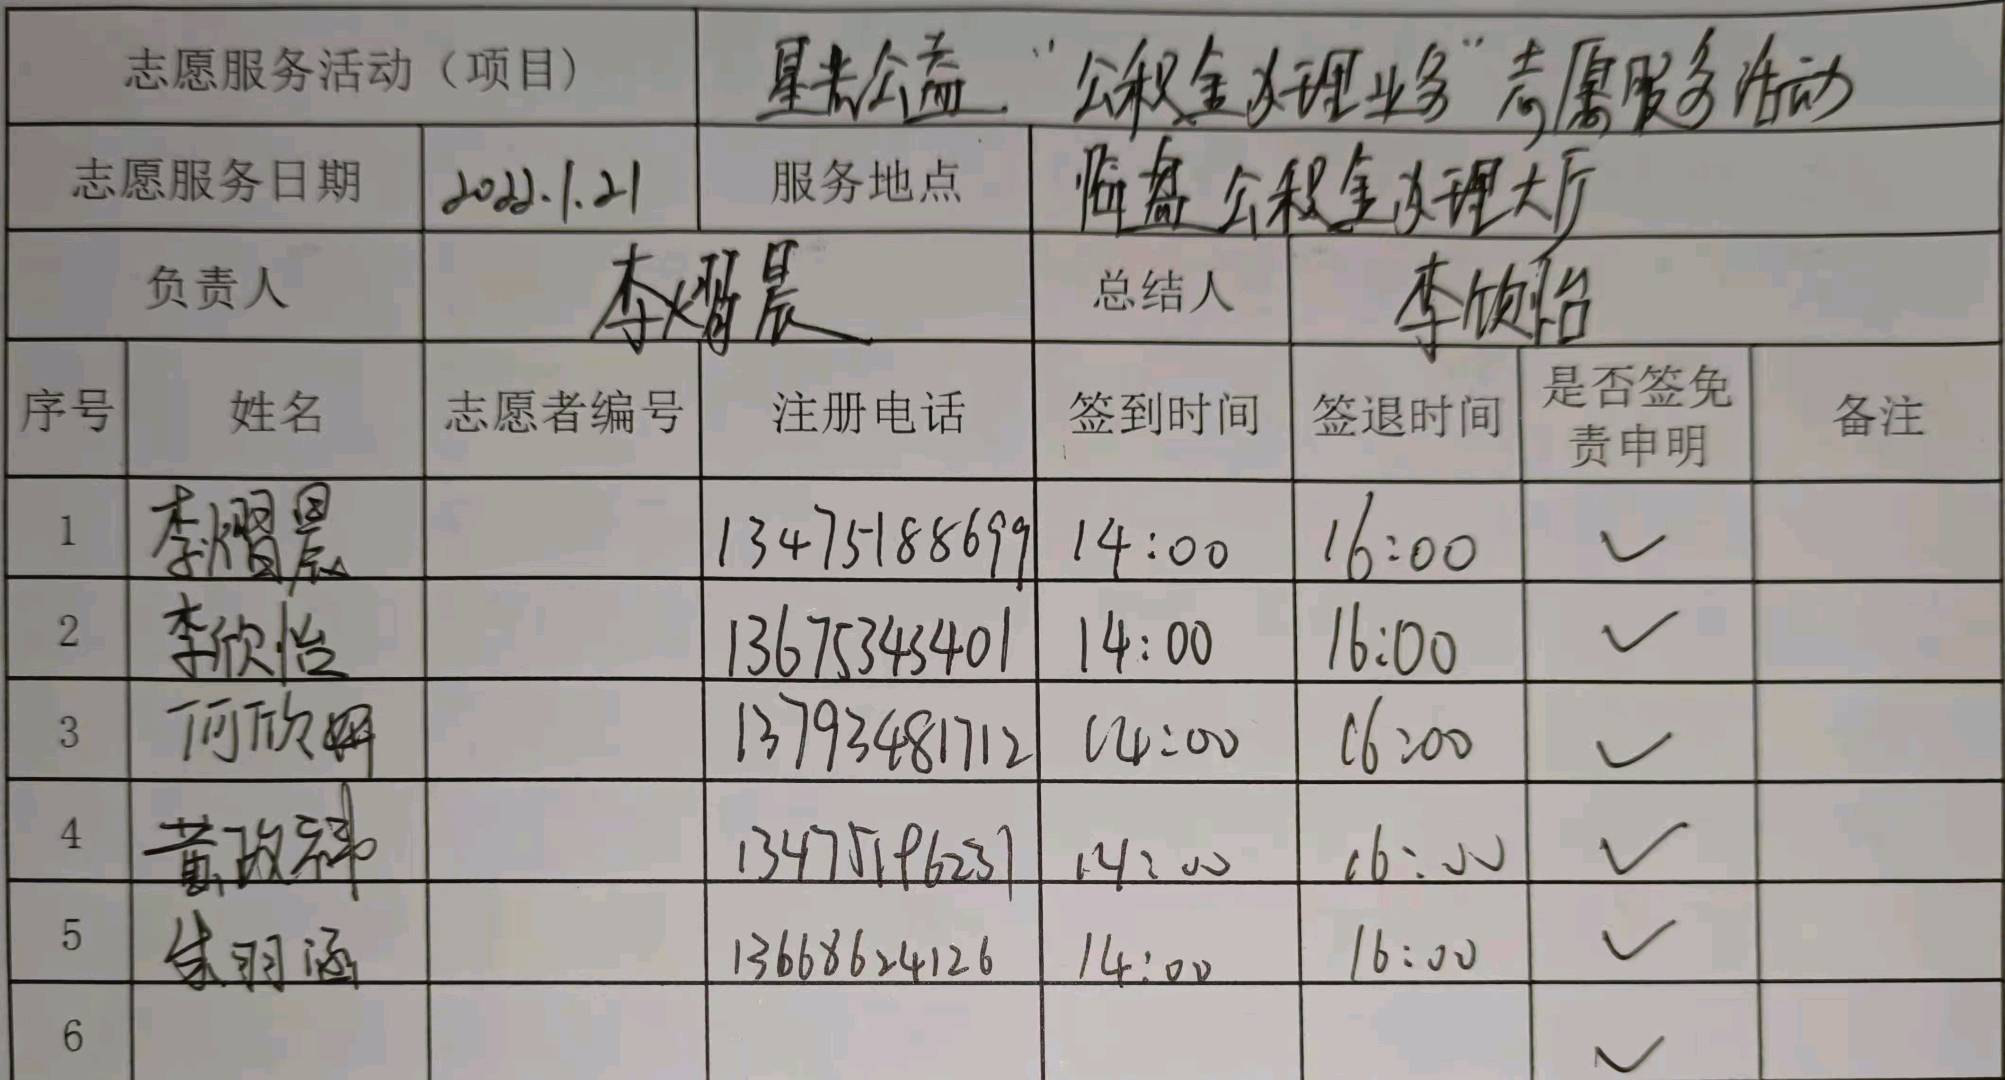 志愿服务活动（项目） 星光公益 "公积金办理业务"志愿服务活动
志愿服务日期 2022.1.21 服务地点 临盘公积金办理大厅
负责人 李熠晨 总结人 李欣怡
序号 姓名 志愿者编号 注册电话 签到时间 签退时间 是否签免责申明 备注
1 李熠晨 13475188699 14:00 16:00 ✓
2 李欣怡 13675343401 14:00 16:00 ✓
3 何欣 13793481712 14:00 16:00 ✓
4 黄政 13475196237 14:00 16:00 ✓
5 朱羽涵 13668624126 14:00 16:00 ✓
6 ✓